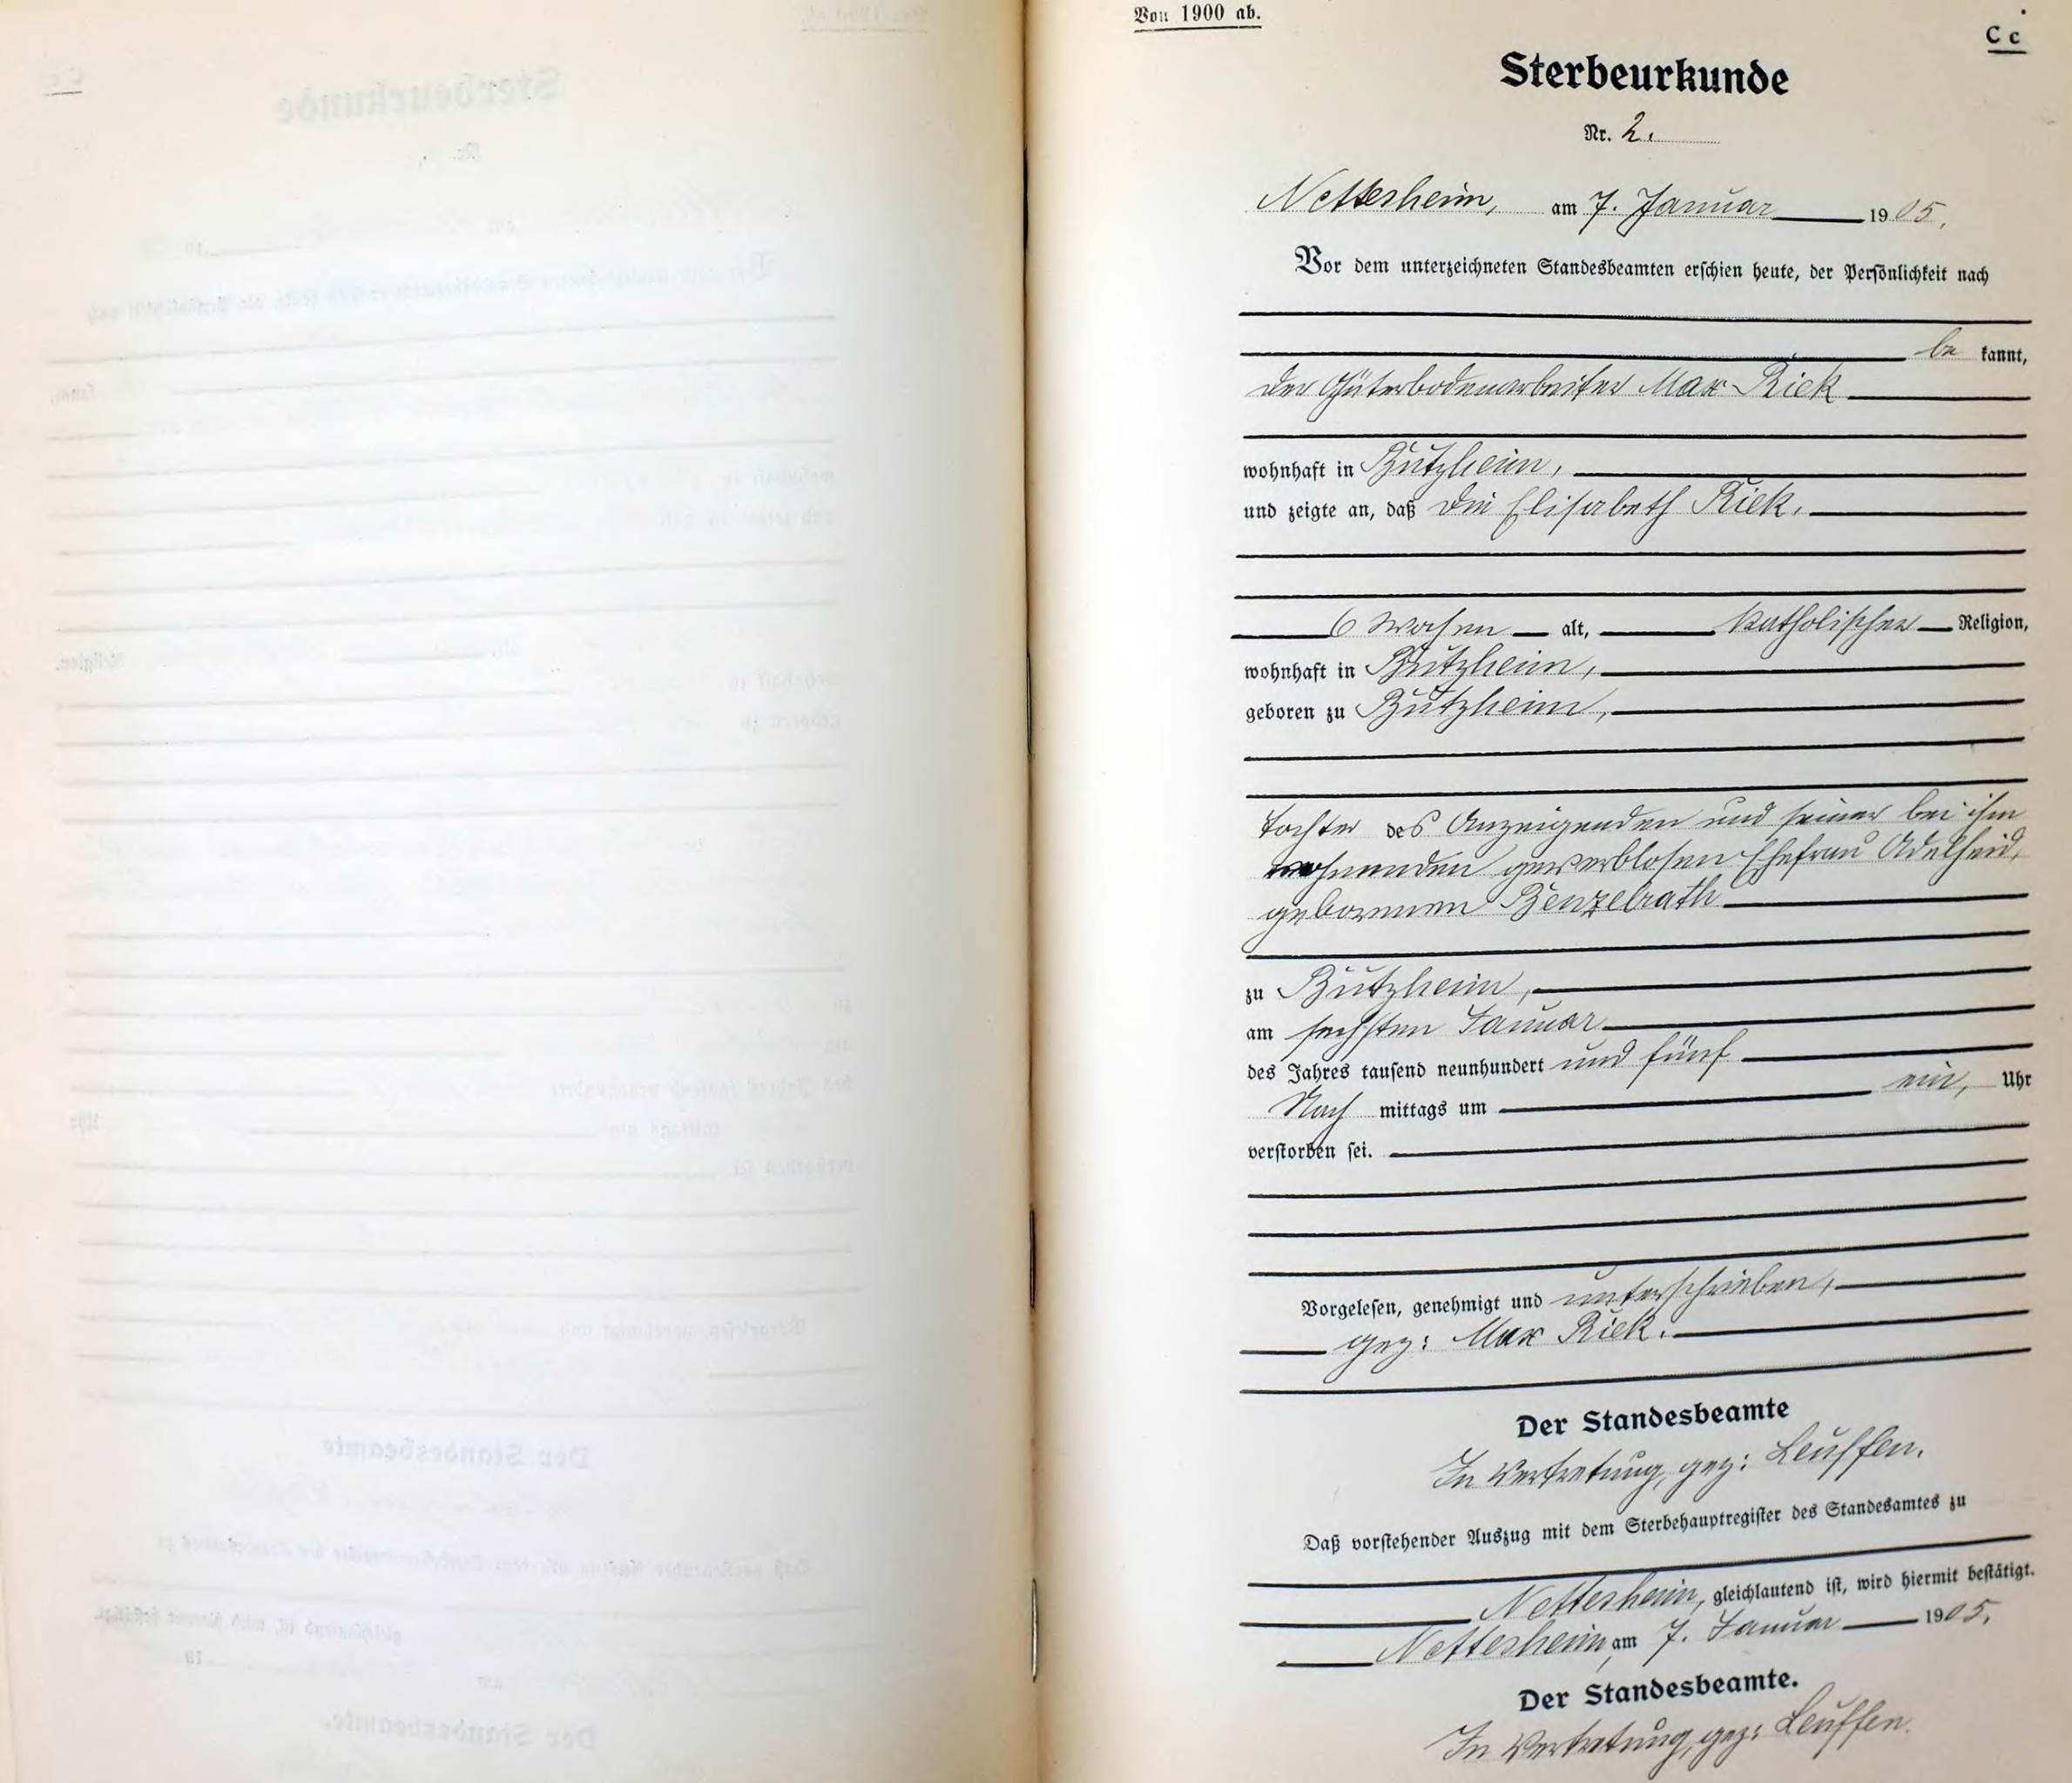 Von 1900 ab.
C c
Sterbeurkunde
Nr. 2.
Nettesheim, am 7. Januar 1905.
Vor dem unterzeichneten Standesbeamten erschien heute, der Persönlichkeit nach
be kannt,
der Güterbodenarbeiter Max Riek
wohnhaft in Butzheim,
und zeigte an, daß die Elisabeth Riek,
6 Wochen alt, katholischer Religion,
wohnhaft in Butzheim,
geboren zu Butzheim,
Tochter des Anzeigenden und seiner bei ihm
wohnenden gewerblosen Ehefrau Adelheid,
geborenen Benzelrath
zu Butzheim,
am sechsten Januar
des Jahres tausend neunhundert und fünf
Nach mittags um ein, Uhr
verstorben sei.
Vorgelesen, genehmigt und unterschrieben,
gez: Max Riek.
Der Standesbeamte
In Vertretung, gez: Leuffen.
Daß vorstehender Auszug mit dem Sterbehauptregister des Standesamtes zu
Nettesheim, gleichlautend ist, wird hiermit bestätigt.
Nettesheim, am 7. Januar 1905.
Der Standesbeamte.
In Vertretung, gez: Leuffen.